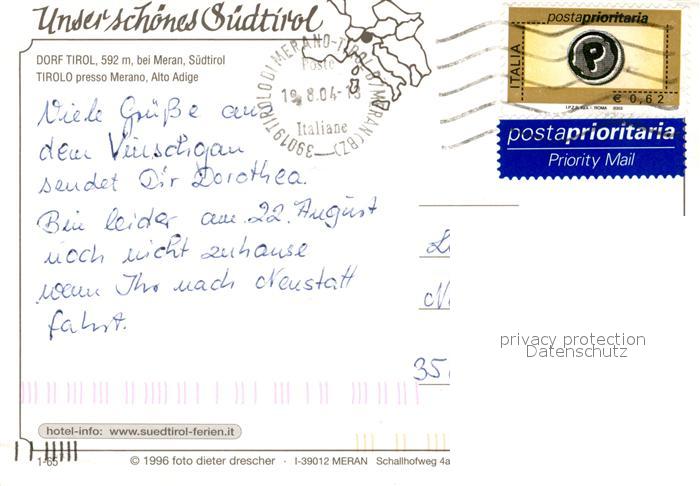 Unser schönes Südtirol
DORF TIROL, 592 m, bei Meran, Südtirol
TIROLO presso Merano, Alto Adige
39019 TIROLO DI MERANO-TIROL B. MERAN (BZ)
Poste
19.8.04-13
Italiane
ITALIA
postaprioritaria
P
€ 0,62
I.P.Z.S. S.p.A. - ROMA 2003
postaprioritaria
Priority Mail
Viele Grüße aus
dem Vinschgau
sendet Dir Dorothea.
Bin leider am 22. August
noch nicht zuhause
wenn Ihr nach Neustatt
fahrt.
L
N
35
privacy protection
Datenschutz
hotel-info: www.suedtirol-ferien.it
1-65
© 1996 foto dieter drescher · I-39012 MERAN Schallhofweg 4a